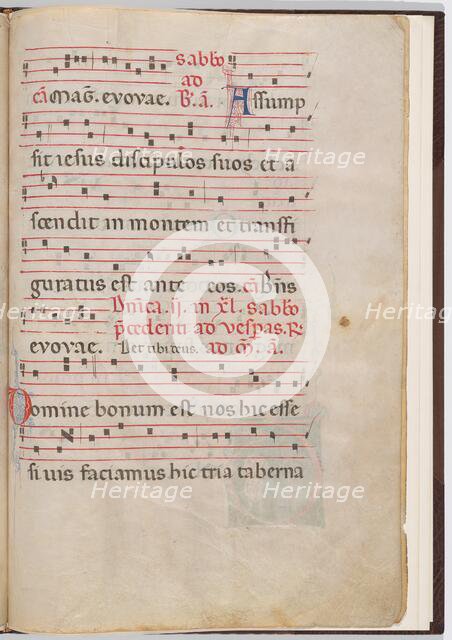 sabbo
ad
c̃ Mag̃. evovae. B. ã. Assump
sit iesus discipulos suos et a
scendit in montem et transfi
guratus est ante eos. c̃ B̃ns
Dñica .ii. in xl. sabbo
p̃cedenti ad vespas. R.
evovae. ad M̃. ã.
Domine bonum est nos hic esse
si vis faciamus hic tria taberna
Heritage
Heritage
Heritage
Heritage
Heritage
Heritage
Heritage